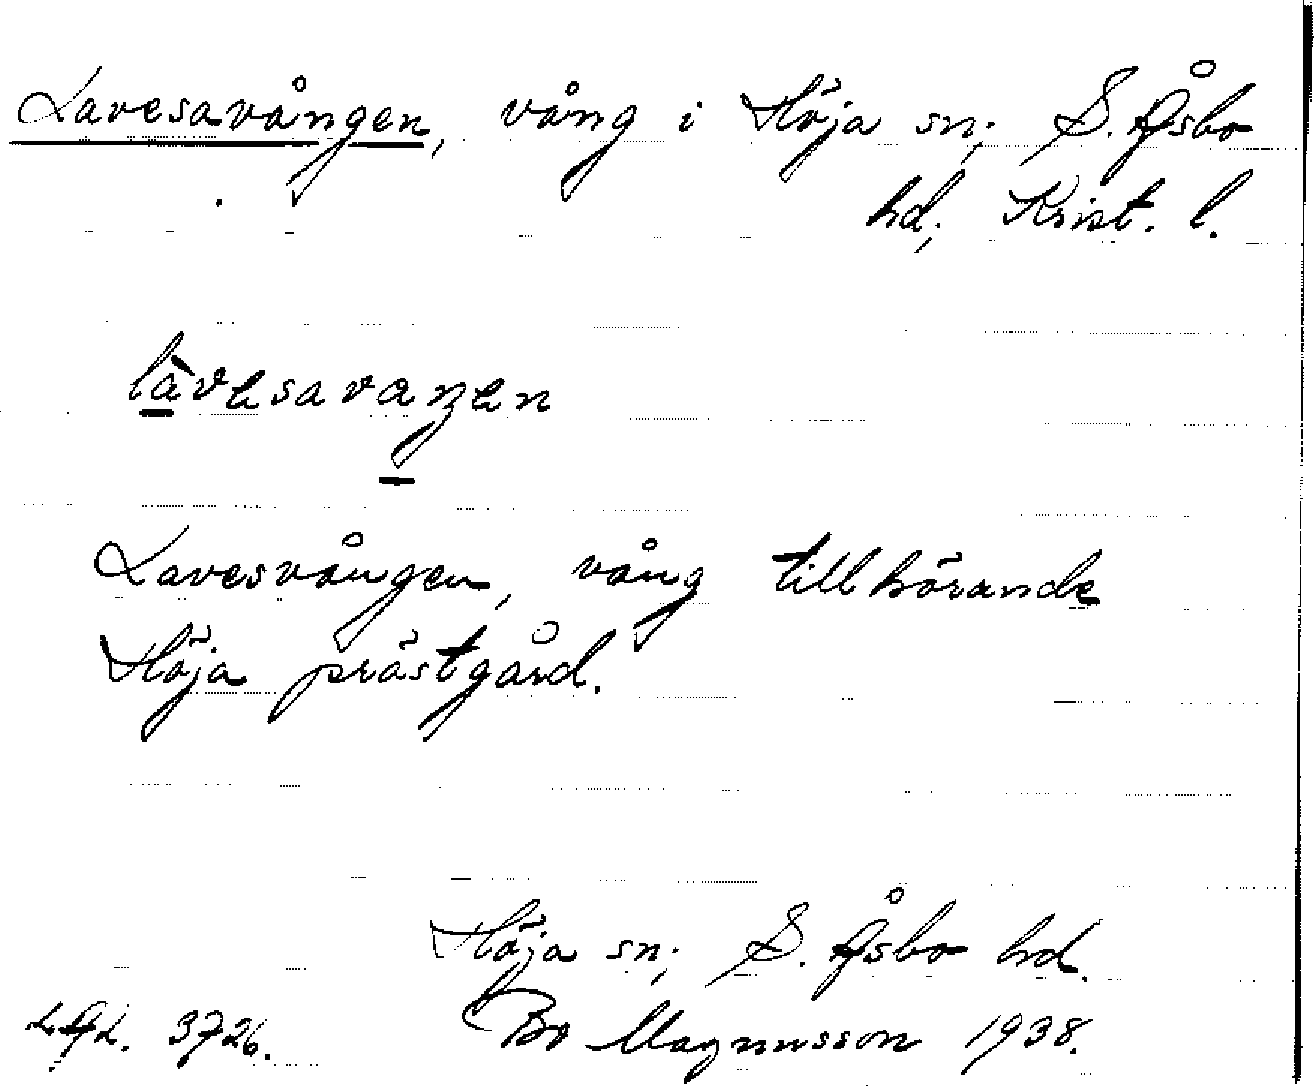 Lavesavången, vång i Höja sn; S. Åsbo
hd; Krist. l.
làvesavaŋen
Lavesvången, vång tillhörande
Höja prästgård.
Höja sn; S. Åsbo hd.
3726. Bo Magnusson 1938.